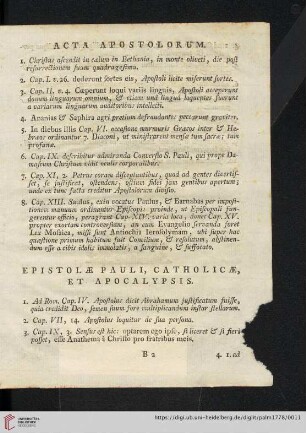 ACTA APOSTOLORUM.
1. Christus ascendit in cælum in Bethania, in monte oliveti, die post
resurrectionem suam quadragesima.
2. Cap. I. v. 26. dederunt sortes eis, Apostoli licite miserunt sortes.
3. Cap. II. v. 4. Cœperunt loqui variis linguis, Apostoli acceperunt
donum linguarum omnium, & etiam una lingua loquentes fuerunt
a variarum linguarum auditoribus intellecti.
4. Ananias & Saphira agri pretium defraudantes peccarunt graviter.
5. In diebus illis Cap. VI. occasione murmuris Græcos inter & He-
bræos ordinantur 7. Diaconi, ut ministrarent mensæ tam sacræ; tam
profanæ.
6. Cap. IX. describitur admiranda Conversio S. Pauli, qui prope Da-
mascum Christum vidit oculis corporalibus.
7. Cap. XI, 2. Petrus coram disceptantibus, quod ad gentes divertis-
set, se justificat, ostendens, etiam fidei januam gentibus apertam;
unde ex hoc facto eruitur Apostolorum divisio.
8. Cap. XIII. Saulus, exin vocatus Paulus, & Barnabas per imposi-
tionem manuum ordinantur Episcopi: proinde, ut Episcopali fun-
gerentur officio, peragrant Cap. XIV. varia loca, donec Cap. XV.
propter exortam controversiam, an cum Evangelio servanda foret
Lex Mosaica, missi sunt Antiochia Jerosolymam, ubi super hac
quæstione primum habitum fuit Concilium, & resolutum, abstinen-
dum esse a cibis idolis immolatis, a sanguine, & suffocato.
EPISTOLÆ PAULI, CATHOLICÆ,
ET APOCALYPSIS.
1. Ad Rom. Cap. IV. Apostolus dicit Abrahamum justificatum fuisse,
quia credidit Deo, semen suum fore multiplicandum instar stellarum.
2. Cap. VII, 14. Apostolus loquitur de sua persona.
3. Cap. IX, 3. Sensus est hic: optarem ego ipse, si liceret & si fieri
posset, esse Anathema à Christo pro fratribus meis.
B 2 4. 1. ad
https://digi.ub.uni-heidelberg.de/diglit/palm1778/0011